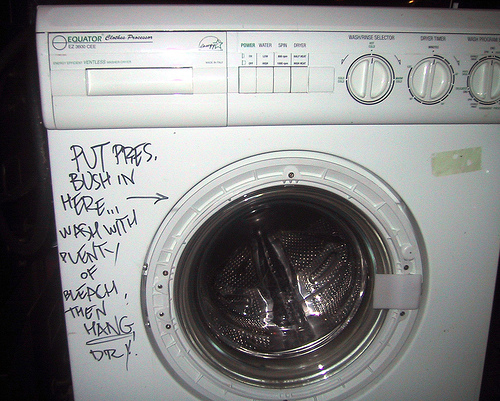 EQUATOR Clothes Processor
EZ 3600 CEE
ENERGY EFFICIENT VENTLESS WASHER-DRYER
POWER WATER SPIN DRYER
WASH/RINSE SELECTOR
DRYER TIMER
MINUTES
WASH PROGRAM
PUT PRES.
BUSH IN
HERE...
WASH WITH
PLENTY
OF
BLEACH,
THEN
HANG
DRY.